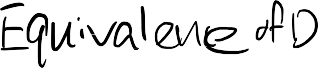 Equivalence of D